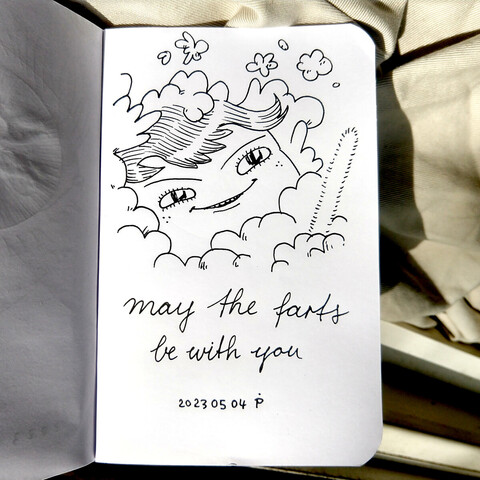 may the farts
be with you
2023 05 04 Ṗ